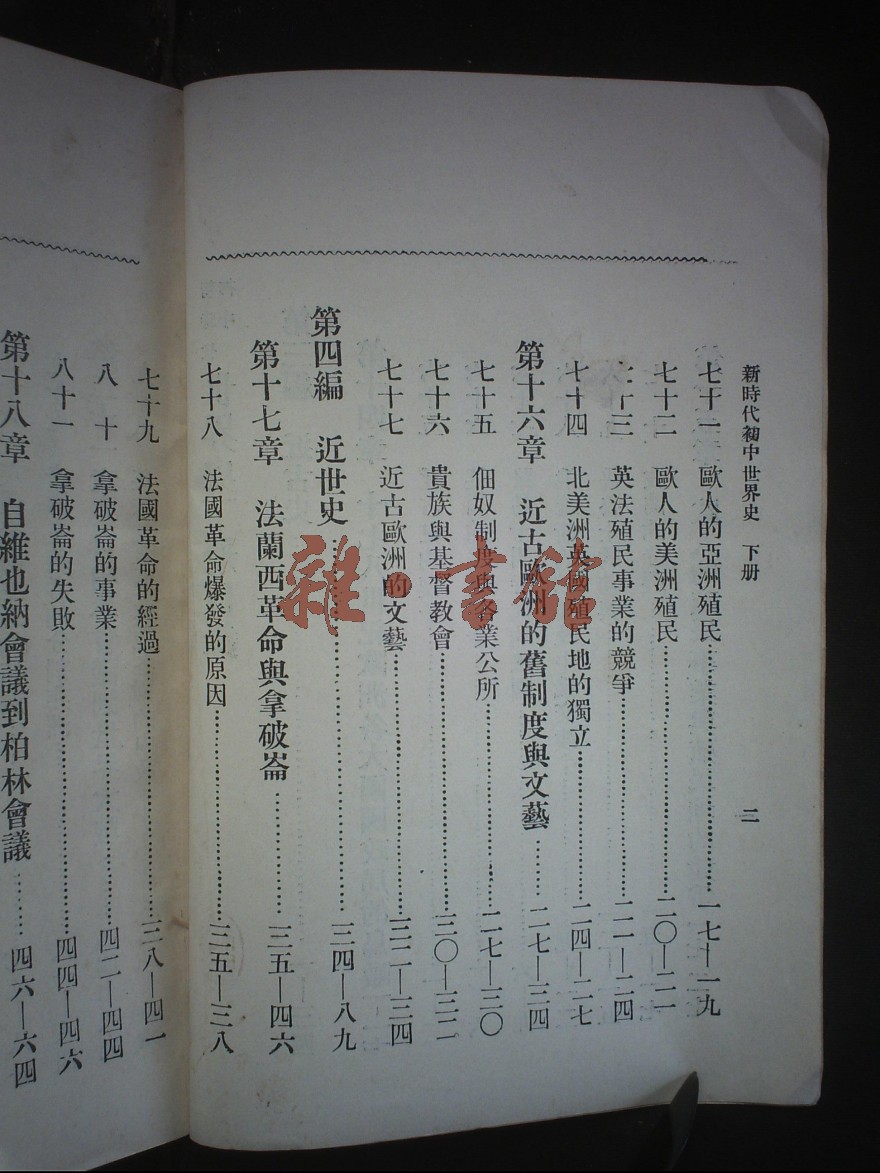 新時代初中世界史　下册　二
七十一　歐人的亞洲殖民……一七—一九
七十二　歐人的美洲殖民……二〇—二一
七十三　英法殖民事業的競爭……二一—二四
七十四　北美洲英國殖民地的獨立……二四—二七
第十六章　近古歐洲的舊制度與文藝……二七—三四
七十五　佃奴制度與各業公所……二七—三〇
七十六　貴族與基督教會……三〇—三二
七十七　近古歐洲的文藝……三二—三四
第四編　近世史……三四—八九
第十七章　法蘭西革命與拿破崙……三五—四六
七十八　法國革命爆發的原因……三五—三八
七十九　法國革命的經過……三八—四一
八十　拿破崙的事業……四二—四四
八十一　拿破崙的失敗……四四—四六
第十八章　自維也納會議到柏林會議……四六—六四
雜·書館